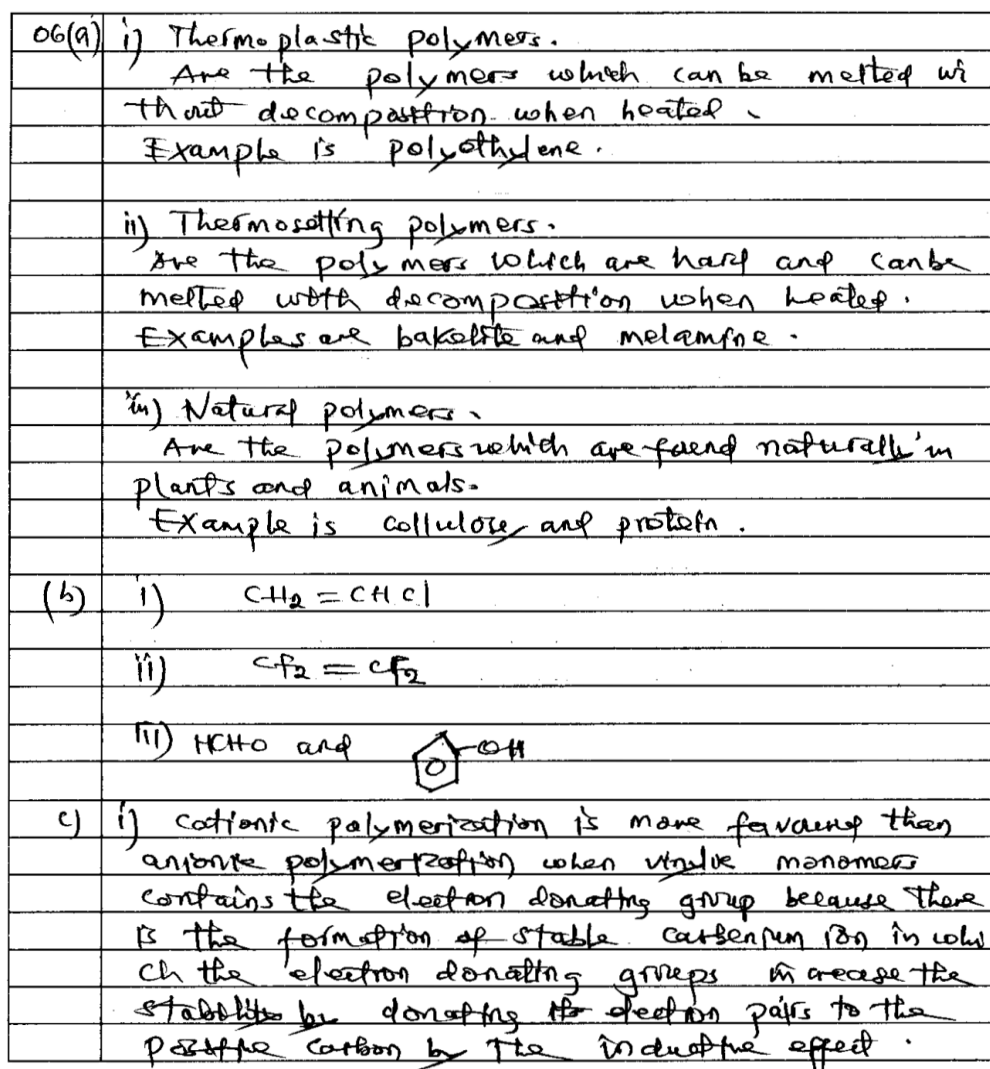 06(a) i) Thermoplastic polymers.
Are the polymers which can be melted wi
thout decomposition when heated.
Example is polyethylene.
ii) Thermosetting polymers.
Are the polymers which are hard and canbe
melted with decomposition when heated.
Examples are bakelite and melamine.
iii) Natural polymers.
Are the polymers which are found naturally in
plants and animals.
Example is cellulose and protein.
(b) i) CH2 = CHCl
ii) CF2 = CF2
iii) HCHO and OH
c) i) Cationic polymerization is more favoured than
anionic polymerization when monomers
contains the electron donating group because there
is the formation of stable carbenium ion in whi
ch the electron donating groups increase the
stability by donating electron pairs to the
positive carbon by the inductive effect.